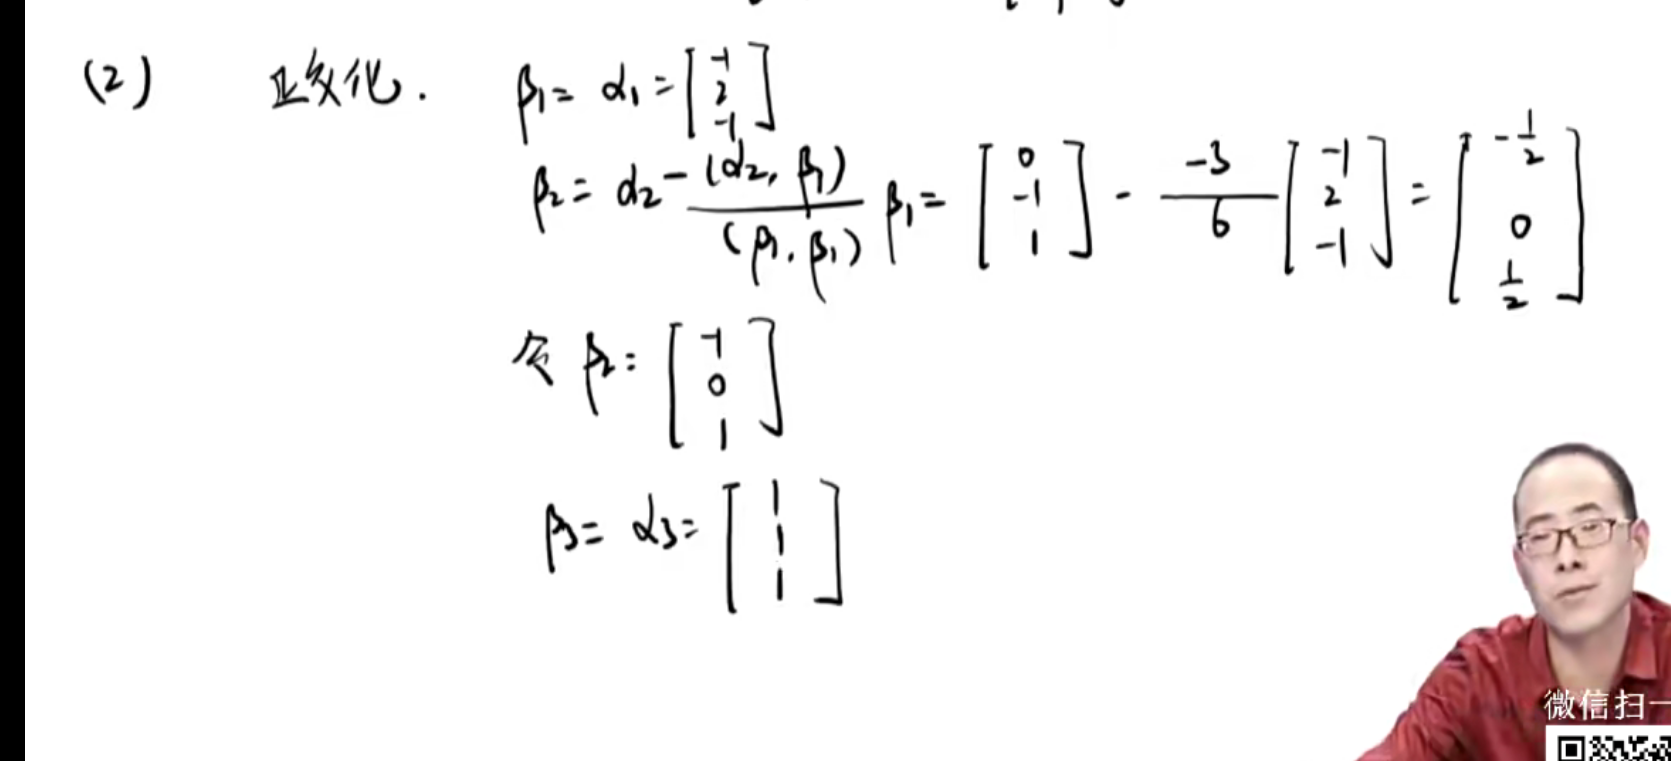 (2) 正交化. β₁= α₁= [-1 2 -1]
β₂= α₂- (α₂, β₁)/(β₁, β₁) β₁= [0 -1 1] - -3/6 [-1 2 -1] = [-1/2 0 1/2]
令 β₂= [-1 0 1]
β₃= α₃= [1 1 1]
微信扫一